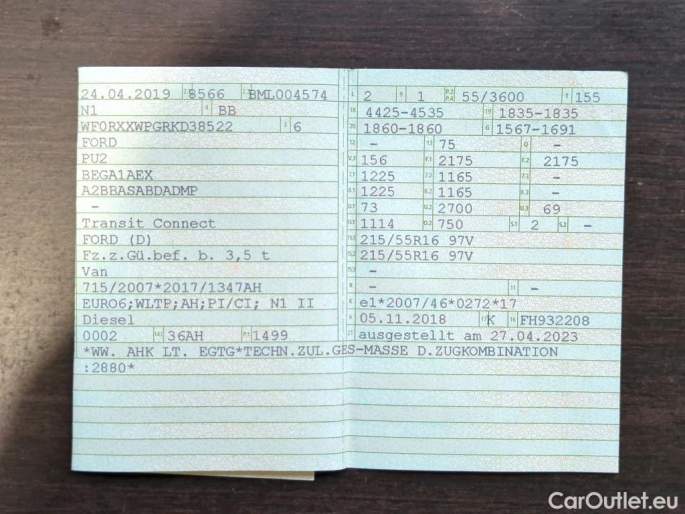 24.04.2019 8566 BML004574
N1 BB
WF0RXXWPGRKD38522 6
FORD
PU2
BEGA1AEX
A2BBASABDADMP
-
Transit Connect
FORD (D)
Fz.z.Gü.bef. b. 3,5 t
Van
715/2007*2017/1347AH
EURO6;WLTP;AH;PI/CI; N1 II
Diesel
0002 36AH 1499
*WW. AHK LT. EGTG*TECHN.ZUL.GES-MASSE D.ZUGKOMBINATION
:2880*
2 1 55/3600 155
4425-4535 1835-1835
1860-1860 1567-1691
- 75 -
156 2175 2175
1225 1165 -
1225 1165 -
73 2700 69
1114 750 2 -
215/55R16 97V
215/55R16 97V
-
- -
e1*2007/46*0272*17
05.11.2018 K FH932208
ausgestellt am 27.04.2023
CarOutlet.eu